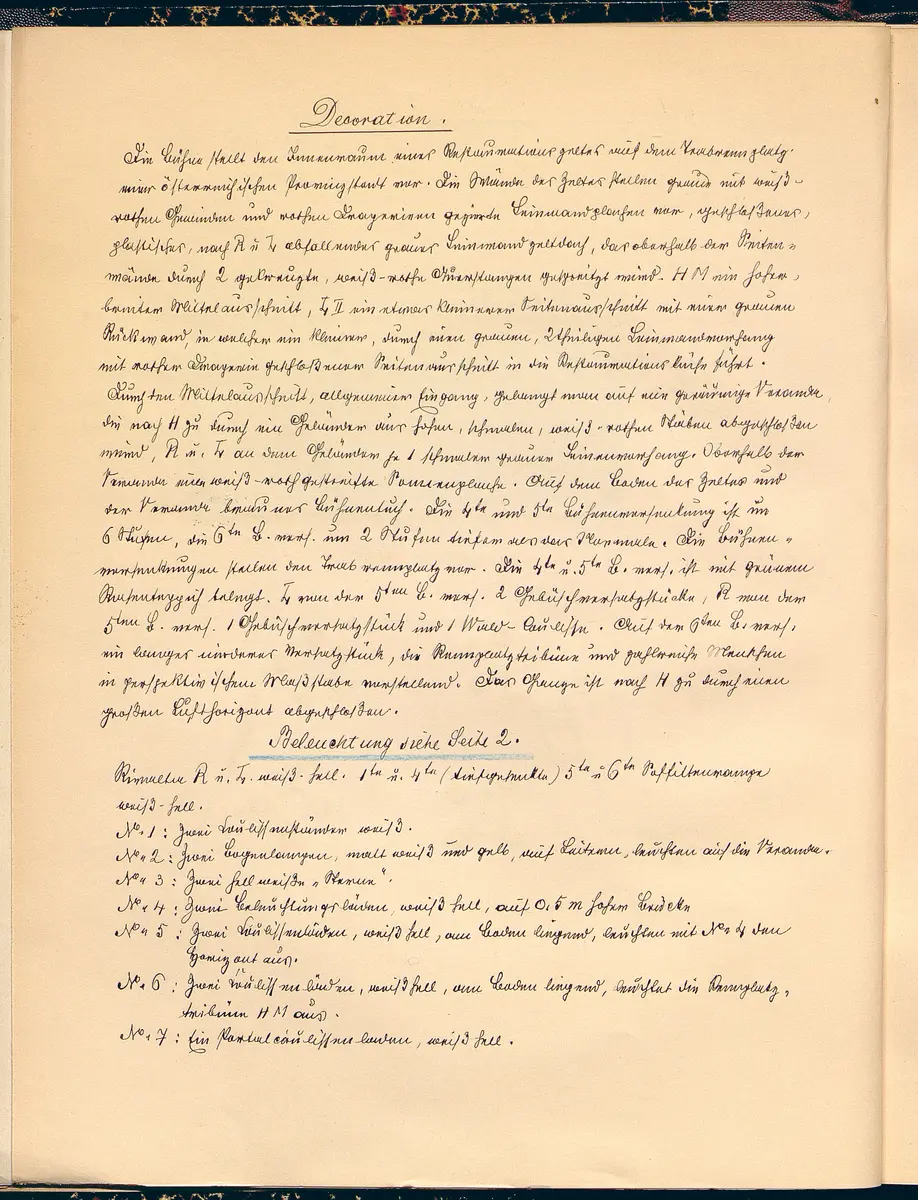 Decoration.
Die Bühne stellt den Innenraum eines Restaurationszeltes auf dem Trabrennplatz
einer österreichischen Provinzstadt vor. Die Wände des Zeltes stellen graue mit weiß-
rothen Gewinden und rothen Dragerieen gezierte Leinwandplachen vor, geschloßenes,
plastisches, nach R u L abfallendes graues Leinwandzeltdach, das oberhalb der Seiten=
wände durch 2 gekreuzte, weiß-rothe Querstangen gespreitzt wird. H M ein hoher,
breiter Mittelausschnitt, L II ein etwas kleinerer Seitenausschnitt mit einer grauen
Rückwand, in welcher ein kleiner, durch einen grauen, 2theiligen Leinwandvorhang
mit rother Dragerie geschloßener Seitenausschnitt in die Restaurationsküche führt.
Durch den Mittelausschnitt, allgemeiner Eingang, gelangt man auf eine geräumige Veranda,
die nach H zu durch ein Geländer aus hohen, schmalen, weiß-rothen Stäben abgeschloßen
wird, R u. L an dem Geländer je 1 schmaler grauer Leinenvorhang. Oberhalb der
Veranda eine weiß-roth gestreifte Sonnenplache. Auf dem Boden des Zeltes und
der Veranda braunes Bühnentuch. Die 4te und 5te Bühnenversenkung ist um
6 Stufen, die 6te B. vers. um 2 Stufen tiefer als das Normale. Die Bühnen=
versenkungen stellen den Trabrennplatz vor. Die 4te u. 5te B. vers. ist mit grünem
Rasenteppich belegt. L von der 5ten B. vers. 2 Gebüschversatzstücke, R von der
5ten B. vers. 1 Gebüschversatzstück und 1 Wald-Coulisse. Auf der 6ten B. vers.
ein langes niederes Versatzstück, die Rennplatztribüne und zahlreiche Menschen
in perspektivischem Maßstabe vorstellend. Das Ganze ist nach H zu durch einen
großen Lufthorizont abgeschloßen.
Beleuchtung siehe Seite 2.
Rivalta R u. L weiß-hell. 1te u. 4te (tiefgesenkte) 5te u 6te Soffittenrampe
weiß-hell.
No 1: Zwei Coulissenständer weiß.
No 2: Zwei Bogenlampen, matt weiß und gelb, auf Leitern, leuchten auf die Veranda.
No 3: Zwei hellweiße „Sterne".
No 4: Zwei Beleuchtungsläden, weiß hell, auf 0,5 m hoher Brücke
No 5: Zwei Coulissenläden, weiß hell, am Boden liegend, leuchten mit No 4 den
Horizont aus.
No 6: Zwei Coulissenläden, weiß hell, am Boden liegend, leuchtet die Rennplatz=
tribüne H M aus.
No 7: Ein Portalcoulissenladen, weiß hell.